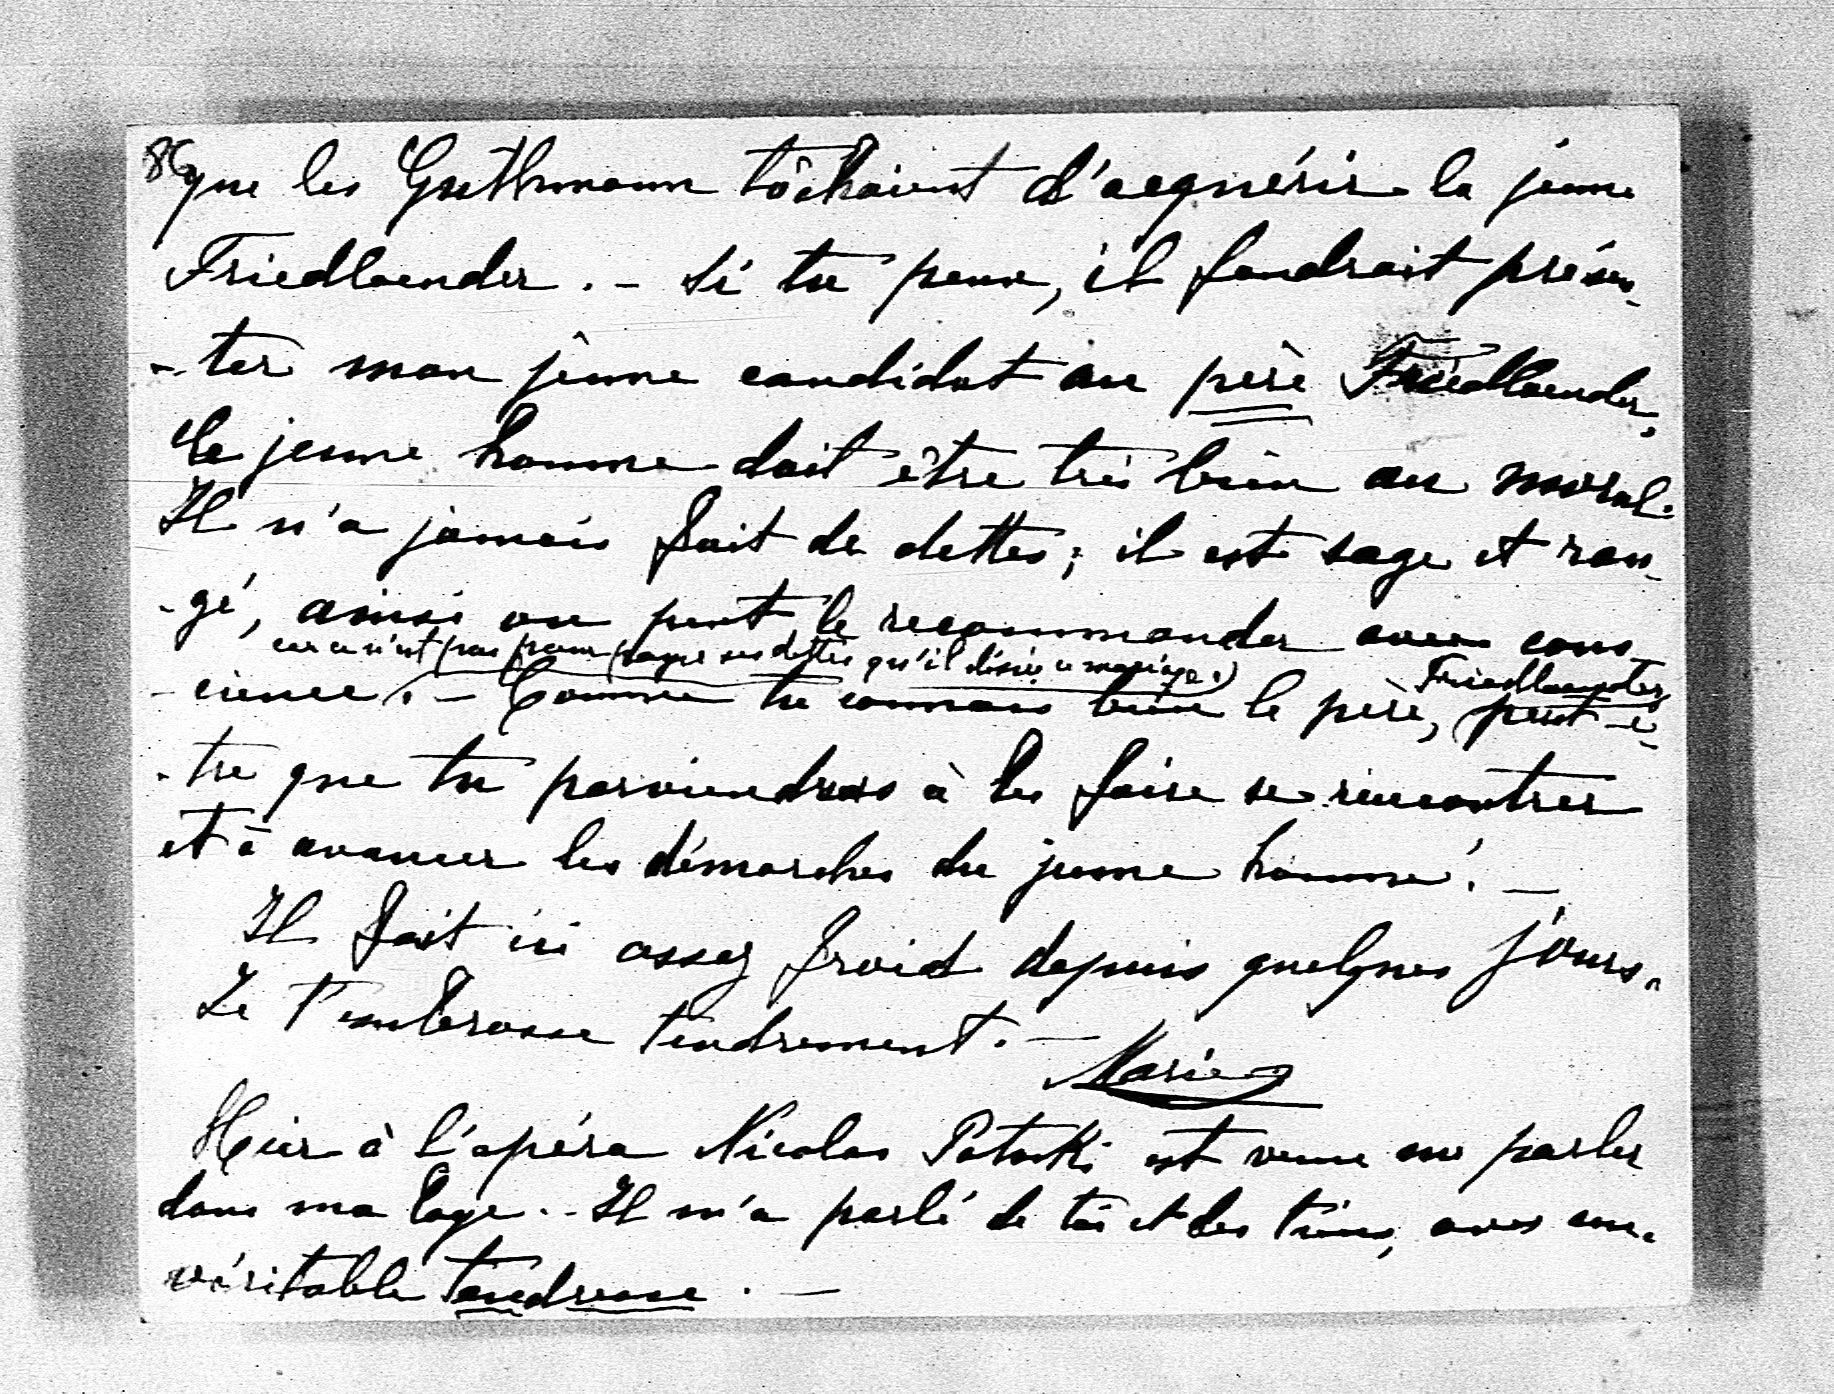 86
que les Guthmann tâchaient d'acquérir la jeune
Friedlaender. - Si tu peux, il faudrait présen-
-ter mon jeune candidat au père Friedlaender.
Ce jeune homme doit être très bien au moral.
Il n'a jamais fait de dettes; il est sage et ran-
-gé, ainsi on peut le recommander avec cons-
car ce n'est pas pour payer ses dettes qu'il désire ce mariage.)
-cience. - Comme tu connais bien le père, Friedlaender peut-ê-
-tre que tu parviendras à les faire se rencontrer
et à avancer les démarches du jeune homme. -
Il fait ici assez froid depuis quelques jours.
Je t'embrasse tendrement. -
Marie
Hier à l'opéra Nicolas Potocki est venu me parler
dans ma loge. - Il m'a parlé de toi et des tiens, avec une
véritable tendresse. -